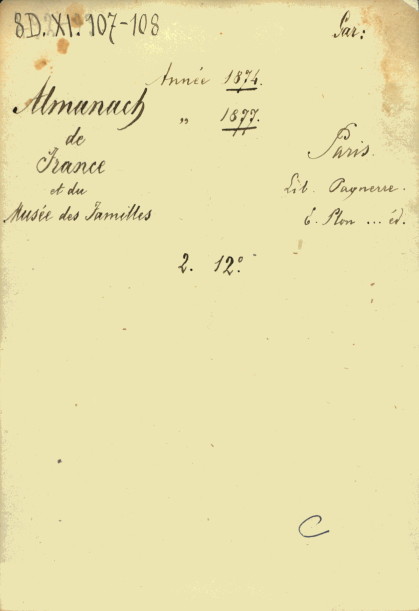 8D. XI. 107-108
Par:
Année 1874.
Almanach „ 1877.
de
France
et du
Musée des Familles
Paris.
Lib. Pagnerre.
E. Plon ... éd.
2. 12°
C